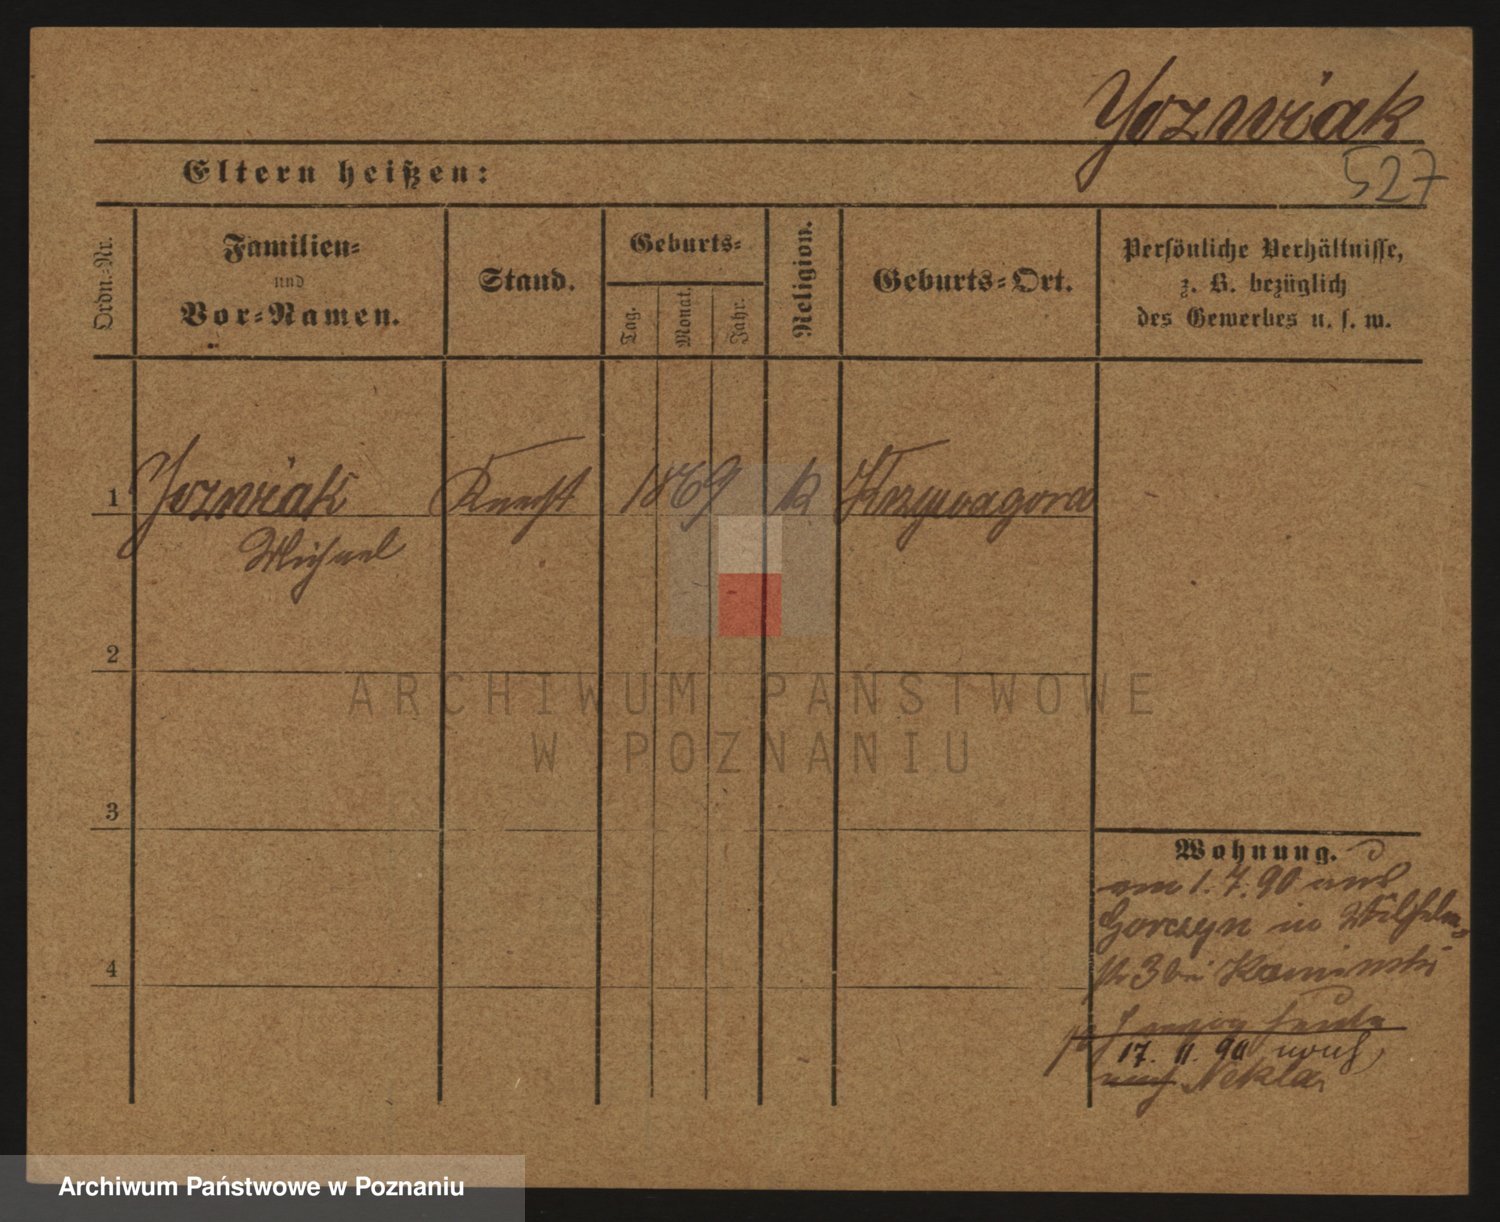 Yozwiak
527
Eltern heißen:
Ordn.-Nr.
Familien-
und
Vor-Namen.
Stand.
Geburts-
Tag.
Monat.
Jahr.
Religion.
Geburts-Ort.
Persönliche Verhältnisse,
z. B. bezüglich
des Gewerbes u. s. w.
1
Yozwiak
Michael
Knecht
1869
k
Krzywagora
2
ARCHIWUM PAŃSTWOWE
W POZNANIU
3
Wohnung.
am 1. 7. 90 aus
Gorczyn in Wilhelm-
str 3 bei Kaminski
17. 11. 90 nach
nach Nekla
4
Archiwum Państwowe w Poznaniu